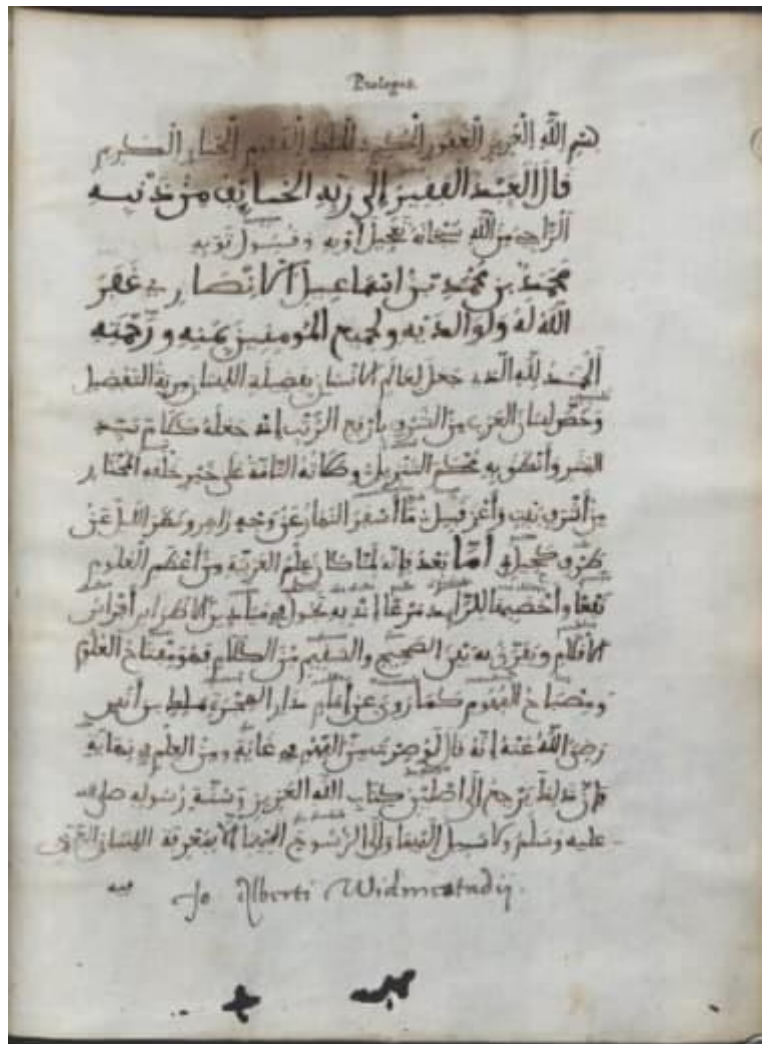 Prologus.
بسم الله العزيز الغفور الملك القديم الكريم
قال العبد الفقير إلى ربه الخائف من ذنبه
الراجي من الله سبحانه تعجيل أوبه وقبول توبه
محمد بن محمد بن إسماعيل الانصاري غفر
الله له ولوالديه ولجميع المومنين بمنه ورحمته
الحمد لله الذي جعل لعالم الانسان بفضيلة اللسان مزية التفضيل
وخص لسان العرب من الشرف بارفع الرتب إذ جعله كلام سيد
البشر وأنطق به محكم التنزيل وصلاته التامة على خير خلقه المختار
من أشرف بيت وأعز قبيل ما أسفر النهار عن وجه زاهر ونظر الليل عن
طرف كحيل أما بعد فإنه لما كان علم العربية من أعظم العلوم
نفعا وأخصبها للرائد مرعا إذ به تجول في ميادين الأفراس
الاقلام ويفرق به بين الصحيح والسقيم من الكلام فهو مفتاح العلوم
ومصباح الفهوم كما روي عن إمام دار الهجرة ملك بن أنس
رضي الله عنه أنه قال لو صرت من الفهم في غاية ومن العلم في نهاية
فإن ذلك يرجع إلى أصلين كتاب الله العزيز وسنة رسوله صلى الله
عليه وسلم ولا سبيل إليهما ولا إلى الرسوخ فيهما إلا بمعرفة اللسان العربي
Jo Alberti Widmestadij.